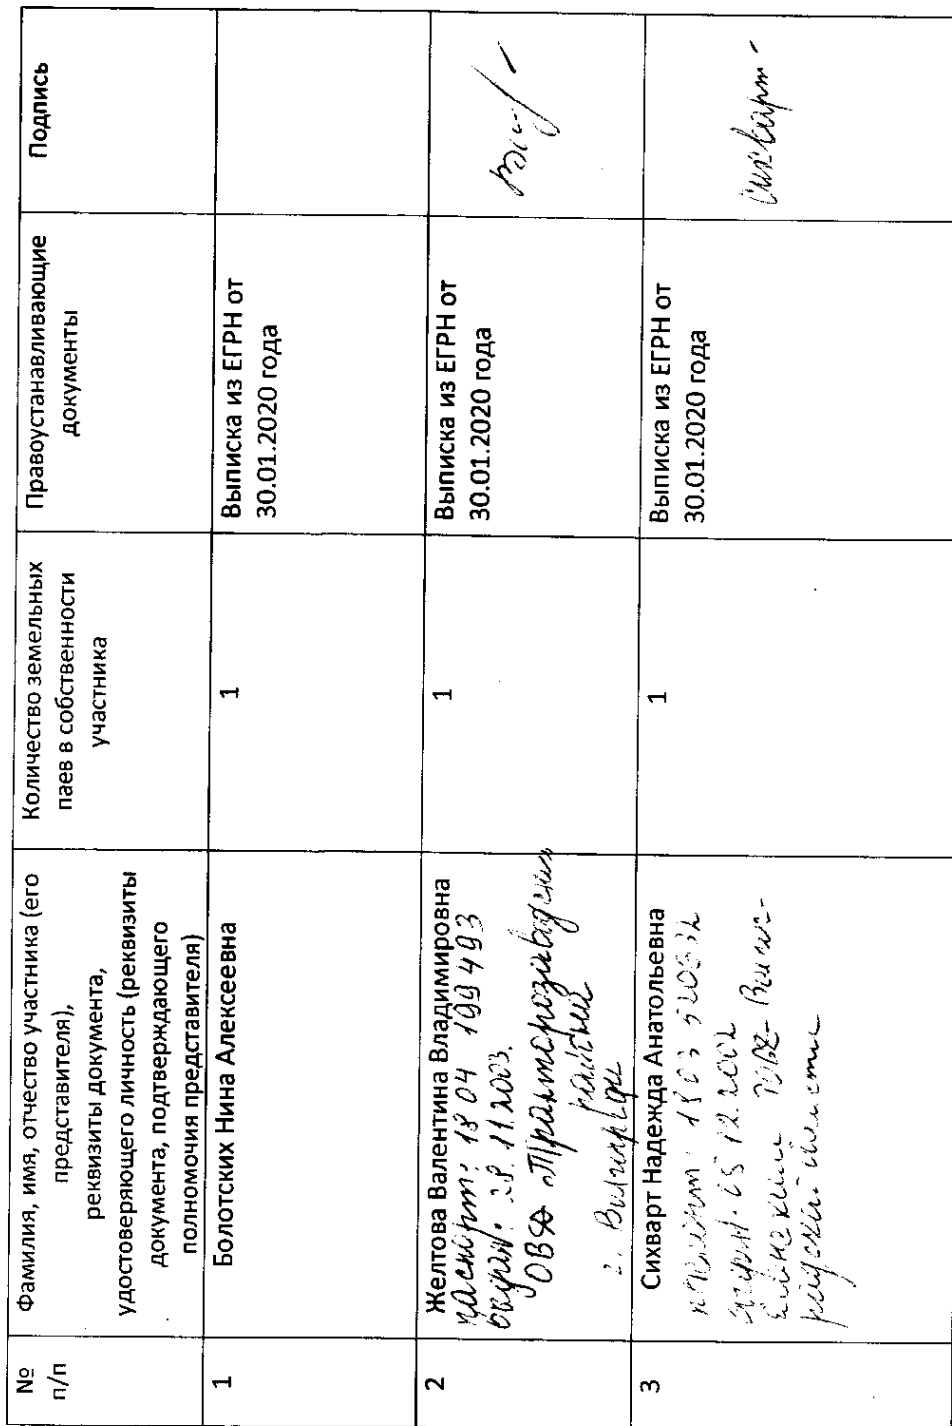 №
п/п
Фамилия, имя, отчество участника (его
представителя),
реквизиты документа,
удостоверяющего личность (реквизиты
документа, подтверждающего
полномочия представителя)
Количество земельных
паев в собственности
участника
Правоустанавливающие
документы
Подпись
1
Болотских Нина Алексеевна
1
Выписка из ЕГРН от
30.01.2020 года
2
Желтова Валентина Владимировна
паспорт: 18 04 199 493
28.11.2003.
ОВД Тракторозаводский
г. Волгограда
1
Выписка из ЕГРН от
30.01.2020 года
3
Сихварт Надежда Анатольевна
паспорт 18 03
12.2002
1
Выписка из ЕГРН от
30.01.2020 года
Сихварт